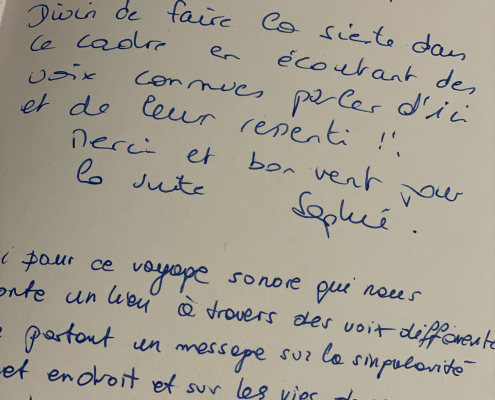 Divin de faire la sieste dans
ce cadre en écoutant des
voix connues parler d'ici
et de leur ressenti !!
Merci et bon vent pour
la suite Sophie.
pour ce voyage sonore qui nous
un lieu à travers des voix différentes
partant un message sur la singularité
et endroit et sur les vies